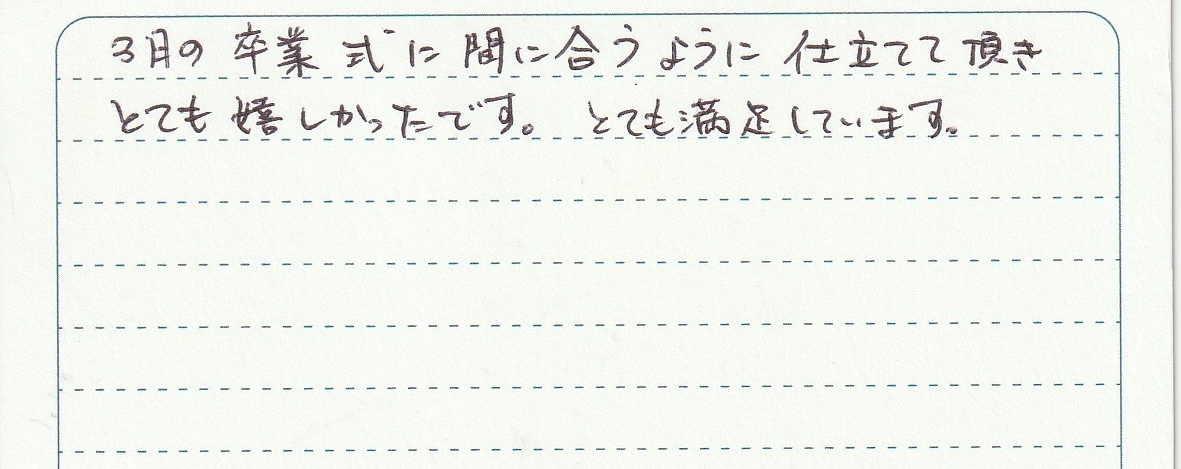 3月の卒業式に間に合うように仕立てて頂き
とても嬉しかったです。とても満足しています。